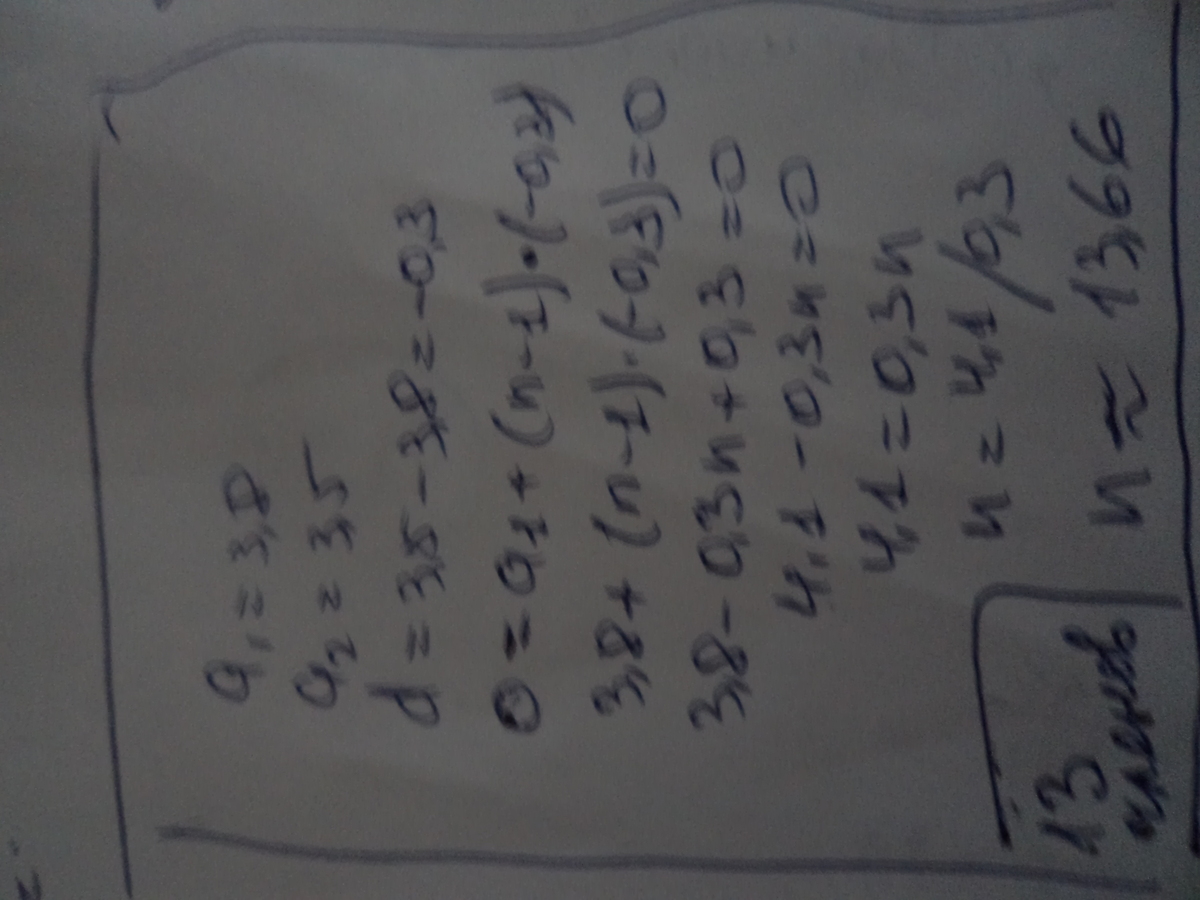 a₁ = 3,8
a₂ = 3,5
d = 3,5 - 3,8 = -0,3
0 = a₁ + (n-1)·(-0,3)
3,8 + (n-1)·(-0,3) = 0
3,8 - 0,3n + 0,3 = 0
4,1 - 0,3n = 0
4,1 = 0,3n
n = 4,1/0,3
n ≈ 13,66
13
членов